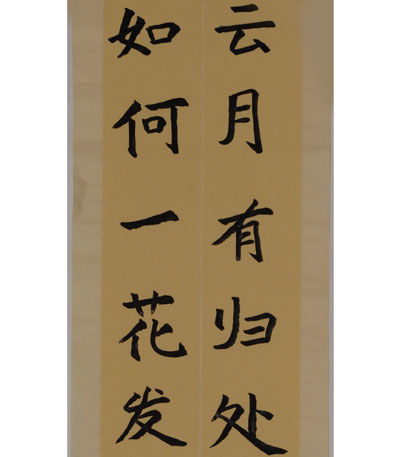 云月有归处
如何一花发